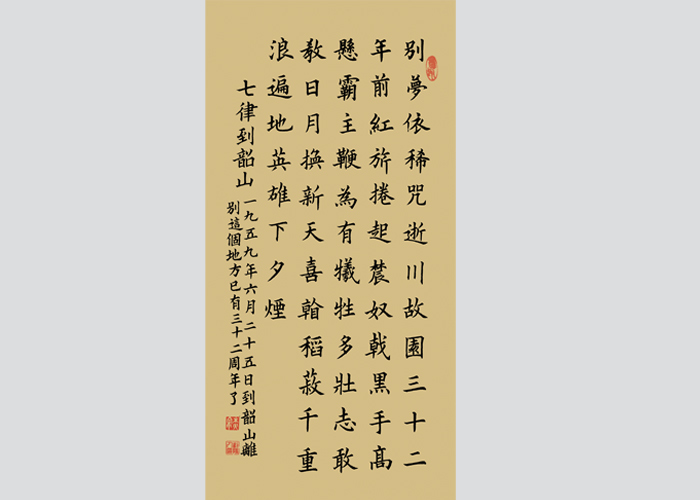 别夢依稀咒逝川故園三十二
年前紅旂捲起農奴戟黑手高
懸霸主鞭為有犧牲多壯志敢
敎日月換新天喜看稻菽千重
浪遍地英雄下夕煙
七律到韶山一九五九年六月二十五日到韶山離
别這個地方已有三十二周年了